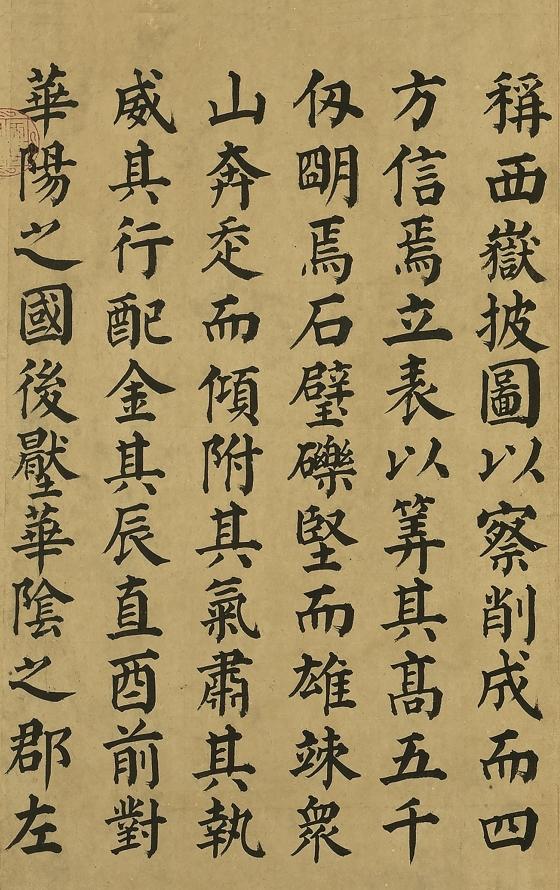 稱西嶽披圖以察削成而四
方信焉立表以筭其高五千
仭朙焉石壁礫堅而雄竦衆
山奔走而傾附其氣肅其執
威其行配金其辰直酉前對
華陽之國後壓華陰之郡左